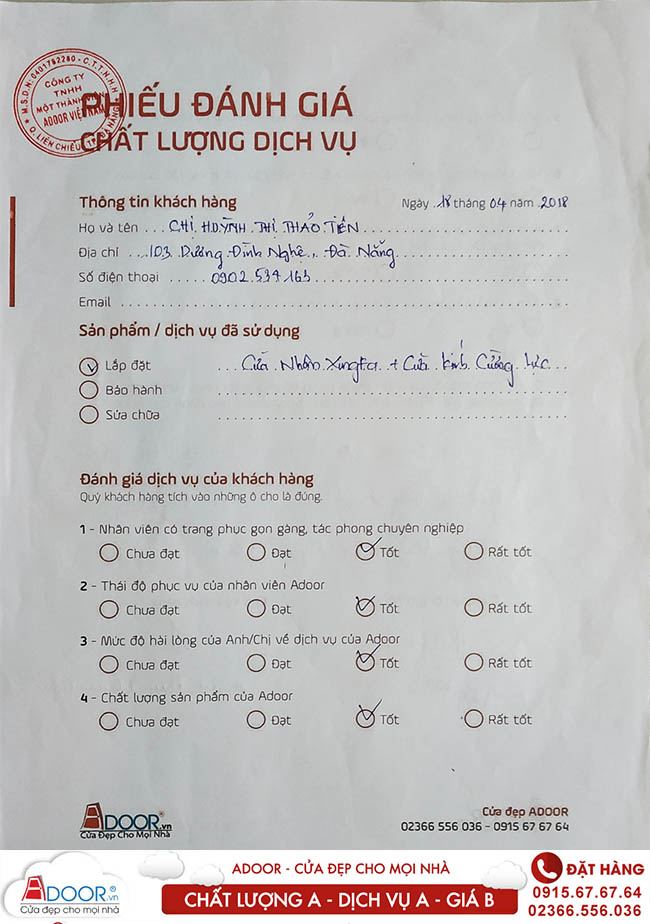 M.S.D.N: 0401782280 - C.T.T.N.H.H
CÔNG TY
TNHH
MỘT THÀNH VIÊN
ADOOR VIỆT NAM
Q. LIÊN CHIỂU - TP. ĐÀ NẴNG
PHIẾU ĐÁNH GIÁ
CHẤT LƯỢNG DỊCH VỤ
Thông tin khách hàng
Ngày 18 tháng 04 năm 2018
Họ và tên CHỊ HUỲNH THỊ THẢO TIÊN
Địa chỉ 103 Dương Đình Nghệ, Đà Nẵng
Số điện thoại 0902.534 163
Email
Sản phẩm / dịch vụ đã sử dụng
Lắp đặt Cửa Nhôm Xingfa + Cửa kính Cường lực
Bảo hành
Sửa chữa
Đánh giá dịch vụ của khách hàng
Quý khách hàng tích vào những ô cho là đúng.
1 - Nhân viên có trang phục gọn gàng, tác phong chuyên nghiệp
Chưa đạt Đạt Tốt Rất tốt
2 - Thái độ phục vụ của nhân viên Adoor
Chưa đạt Đạt Tốt Rất tốt
3 - Mức độ hài lòng của Anh/Chị về dịch vụ của Adoor
Chưa đạt Đạt Tốt Rất tốt
4 - Chất lượng sản phẩm của Adoor
Chưa đạt Đạt Tốt Rất tốt
ADOOR.vn
Cửa Đẹp Cho Mọi Nhà
Cửa đẹp ADOOR
02366 556 036 - 0915 67 67 64
ADOOR.vn
Cửa đẹp cho mọi nhà
ADOOR - CỬA ĐẸP CHO MỌI NHÀ
CHẤT LƯỢNG A - DỊCH VỤ A - GIÁ B
ĐẶT HÀNG
0915.67.67.64
02366.556.036